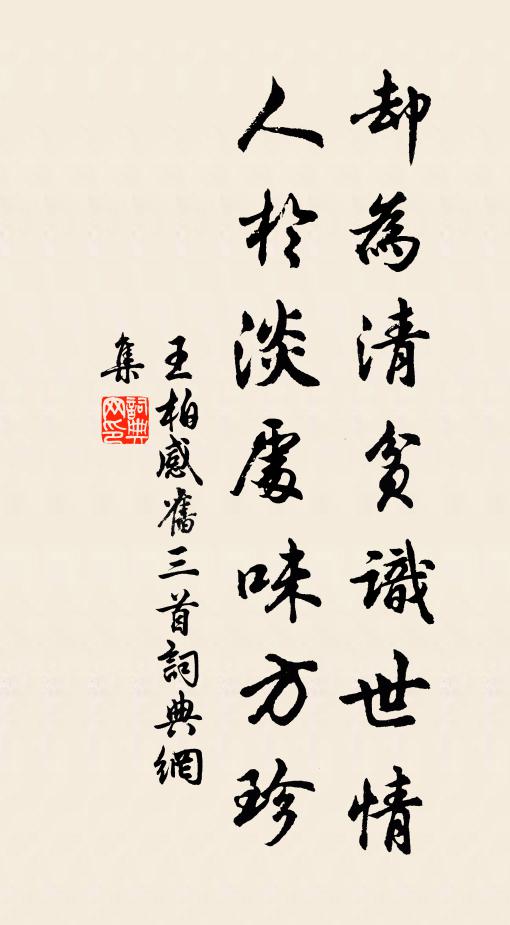 却為清貧識世情
人於淡處味方珍
王柏感舊三首詞典網
集
詞典網印